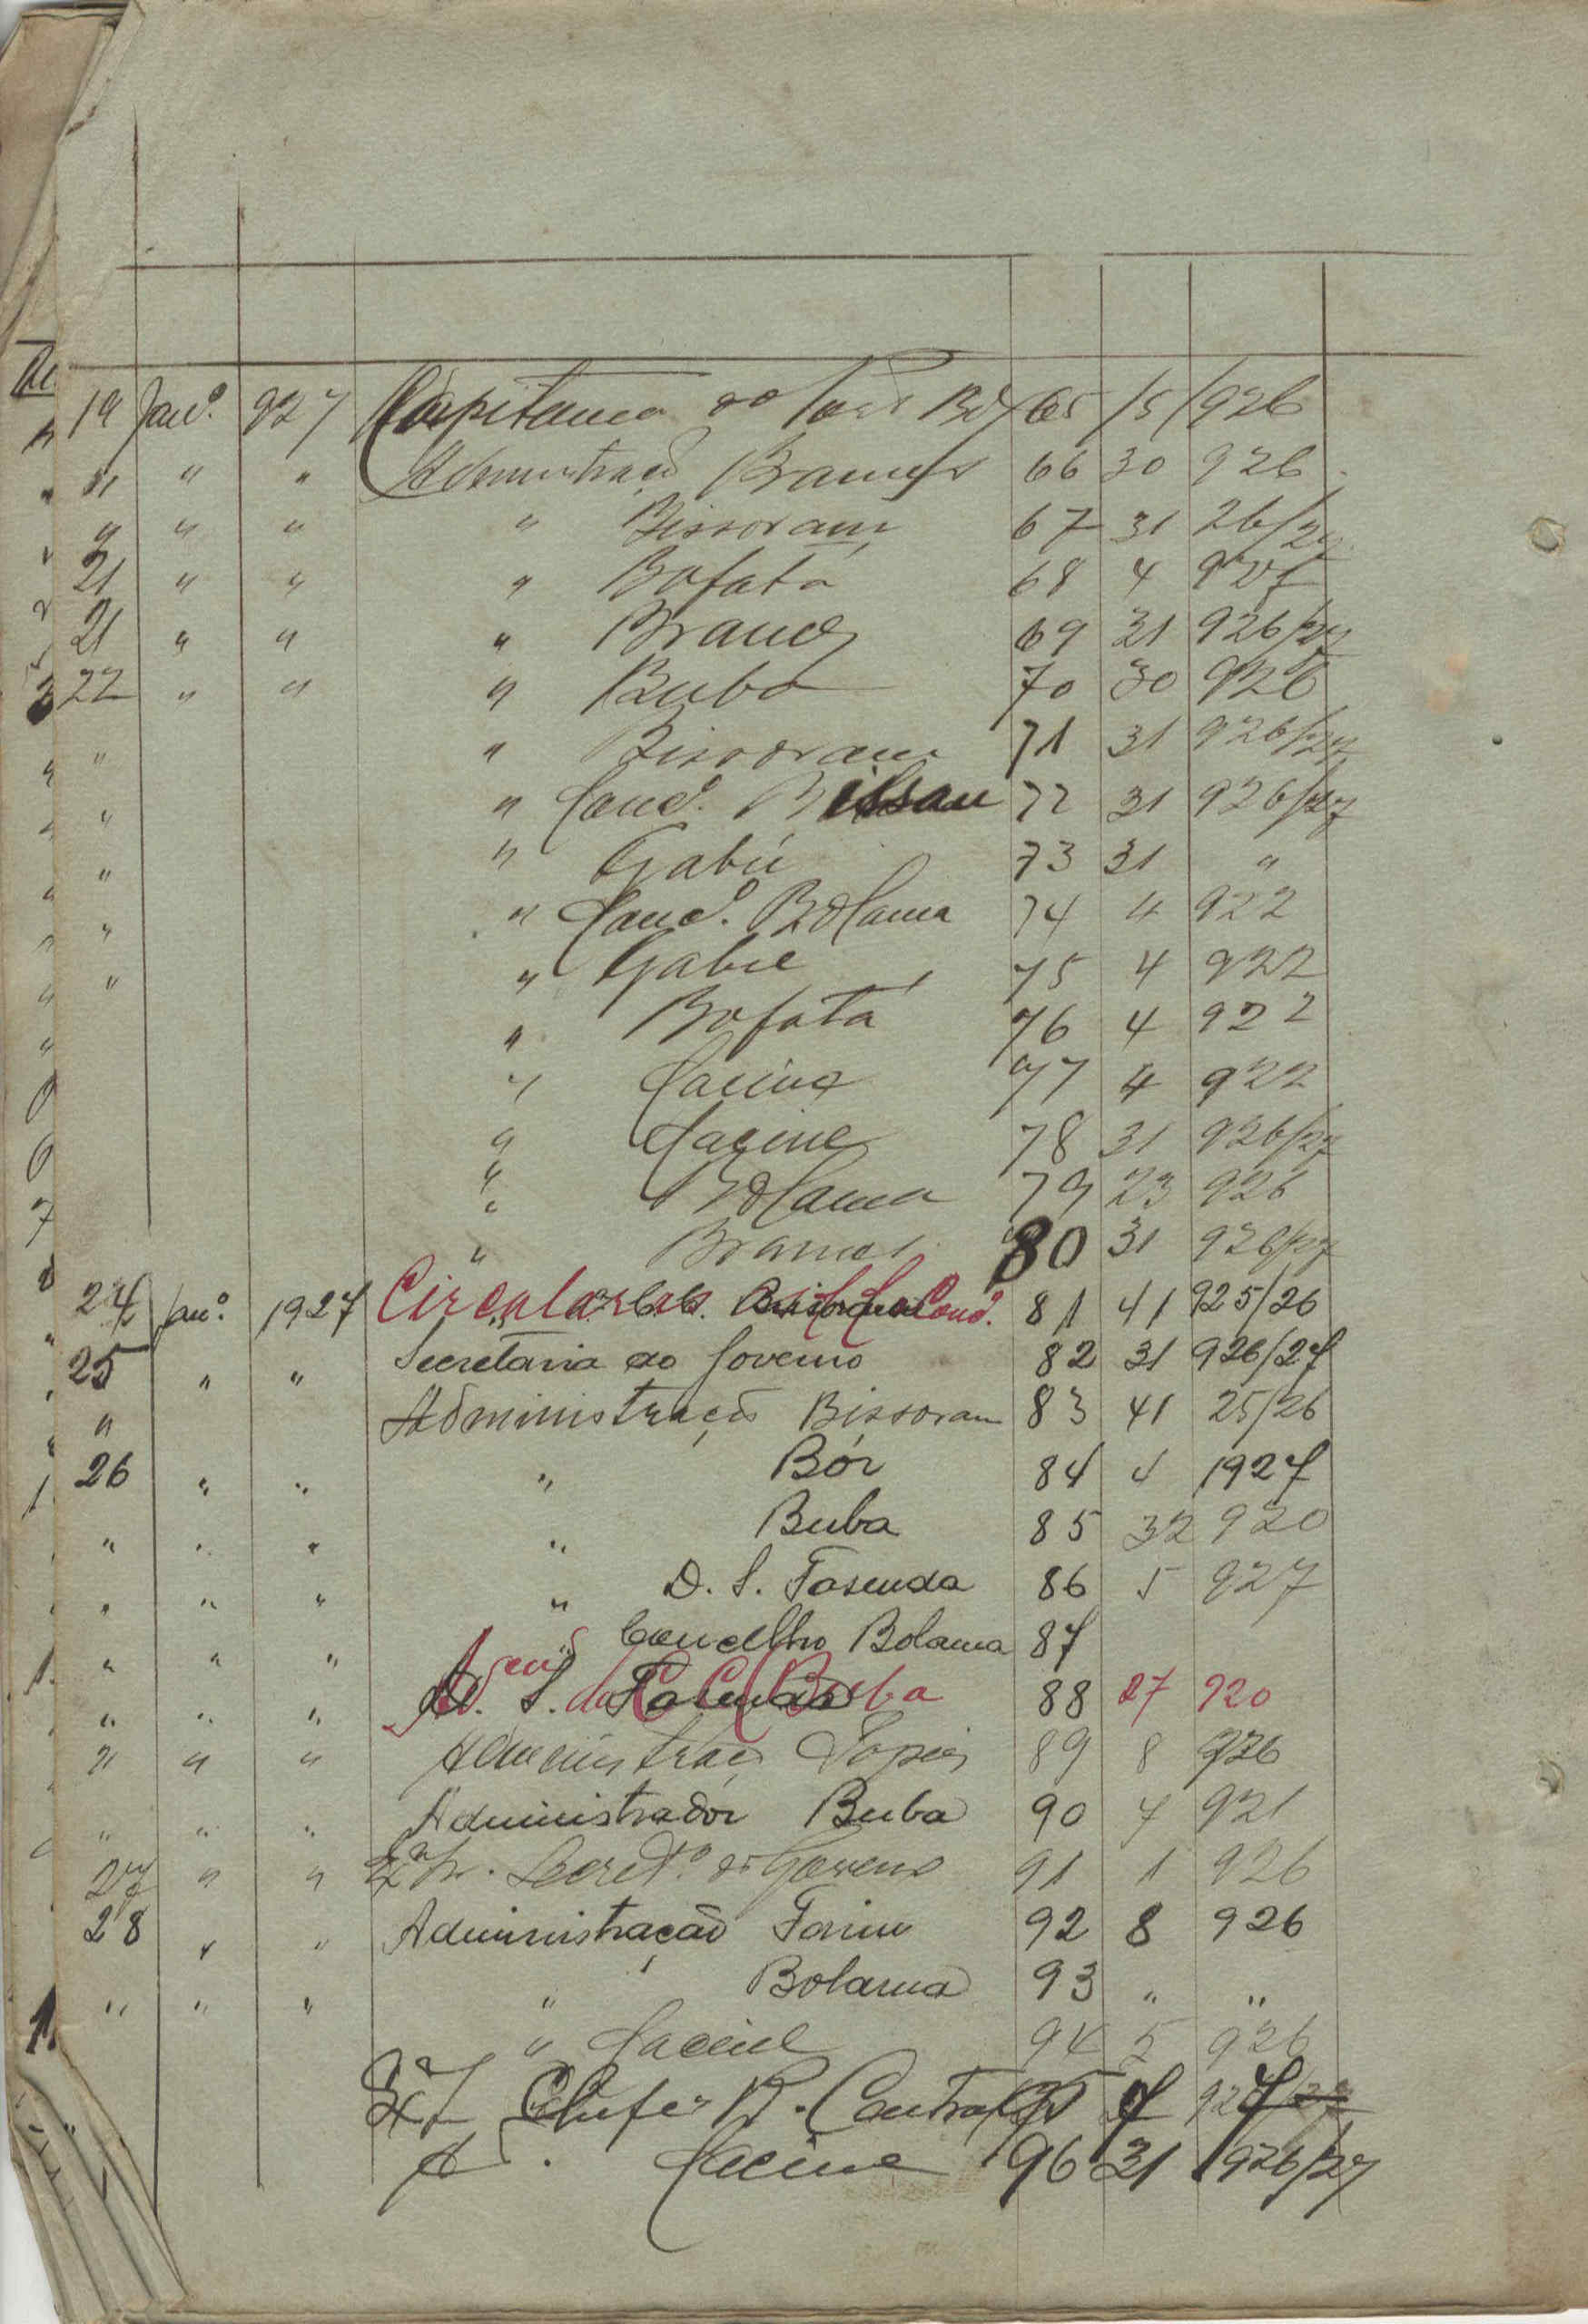 19 Janº. 927 Capitania do Porto 65 15 926
" " " Administração Brames 66 30 926
" " " " Bissoram 67 31 26/27
21 " " " Bafatá 68 4 927
21 " " " Brames 69 31 926/27
22 " " " Buba 70 30 926
" " Bissoram 71 31 926/27
" " Concº. Bissau 72 31 926/27
" " Gabú 73 31 "
" " Concº. Bolama 74 4 922
" " Gabú 75 4 922
" " Bafatá 76 4 922
" Cacine 77 4 922
" Cacine 78 31 926/27
" Bolama 79 23 926
" Brames 80 31 926/27
24 Janº. 1927 Circulares Concº. 81 41 925/26
25 " " Secretaria do Governo 82 31 926/27
" Administração Bissoram 83 41 25/26
26 " " " Bór 84 4 1927
" " " " Buba 85 32 920
" " " " D. S. Fasenda 86 5 927
" " " " Concelho Bolama 87
" " " Buba 88 27 920
" " " Administração 89 8 926
" " " Administrador Buba 90 4 921
27 " " Secretº. do Governo 91 1 926
28 " " Administração Farim 92 8 926
" " " " Bolama 93 " "
" Cacine 94 5 926
Chefe R. Central 95
Cacine 96 31 926/27